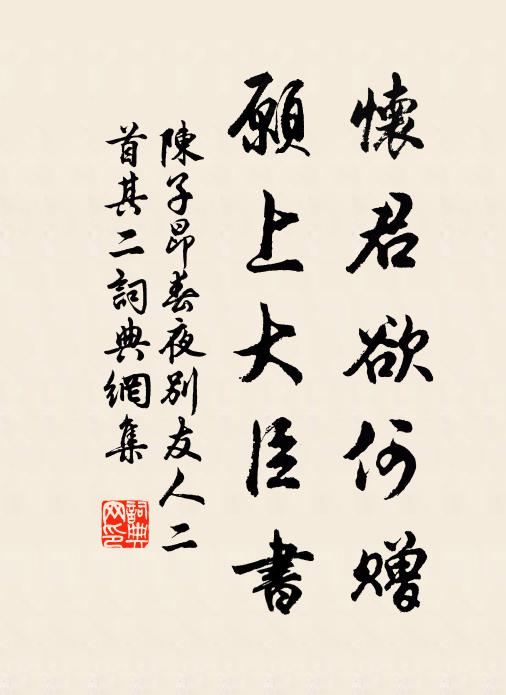 懷君欲何贈
願上大臣書
陳子昂春夜別友人二
首其二詞典網集
詞典
网印